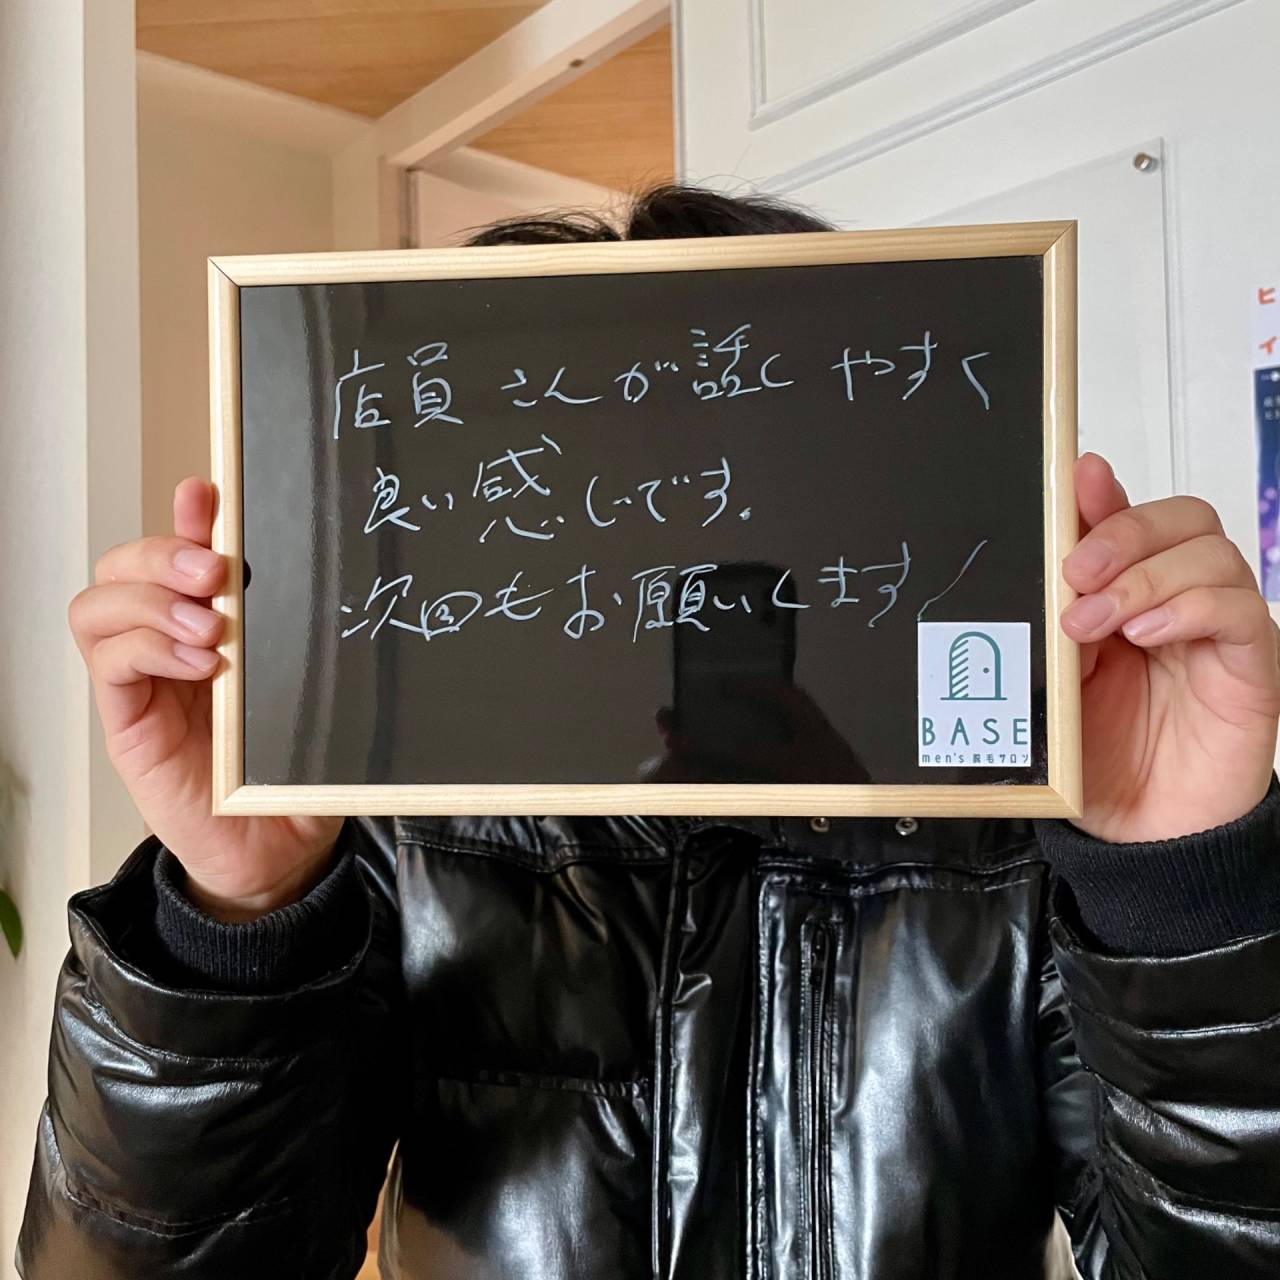 店員さんが話しやすく
良い感じです。
次回もお願いします!
BASE
men's 脱毛サロン
ヒ
イ